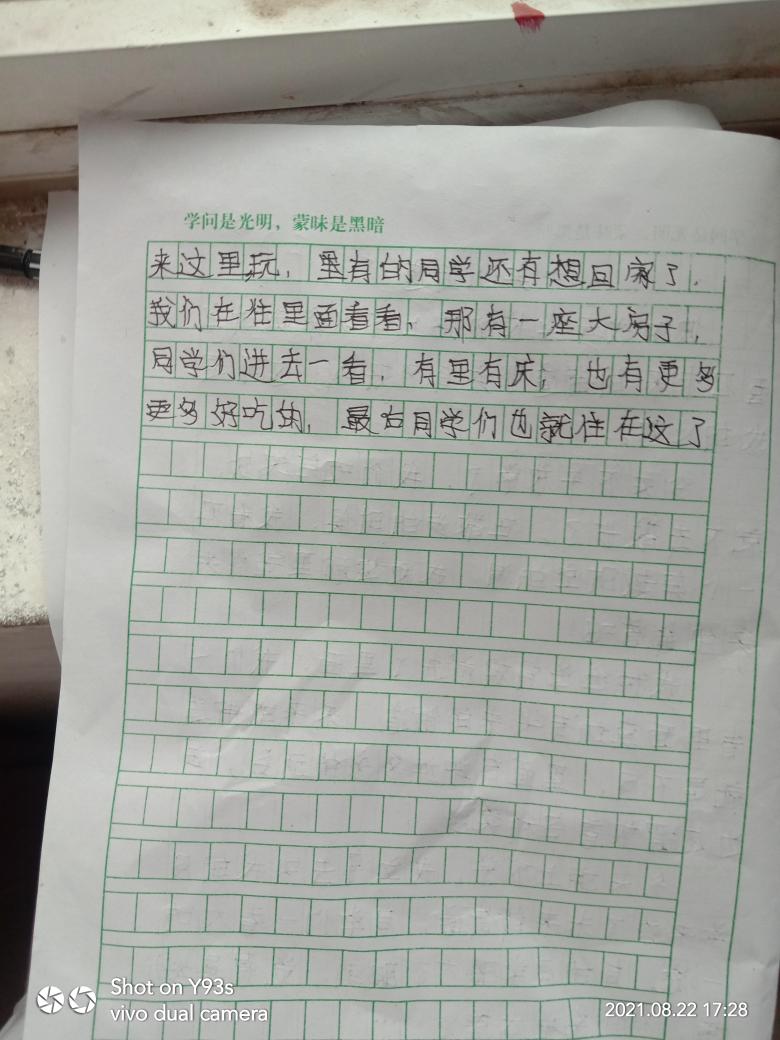 学问是光明，蒙昧是黑暗
来这里玩，里有的同学还有想回家了，
我们在往里面看看，那有一座大房子，
同学们进去一看，有里有床，也有更多
更多好吃的，最右同学们也就住在这了
Shot on Y93s
vivo dual camera
2021.08.22 17:28